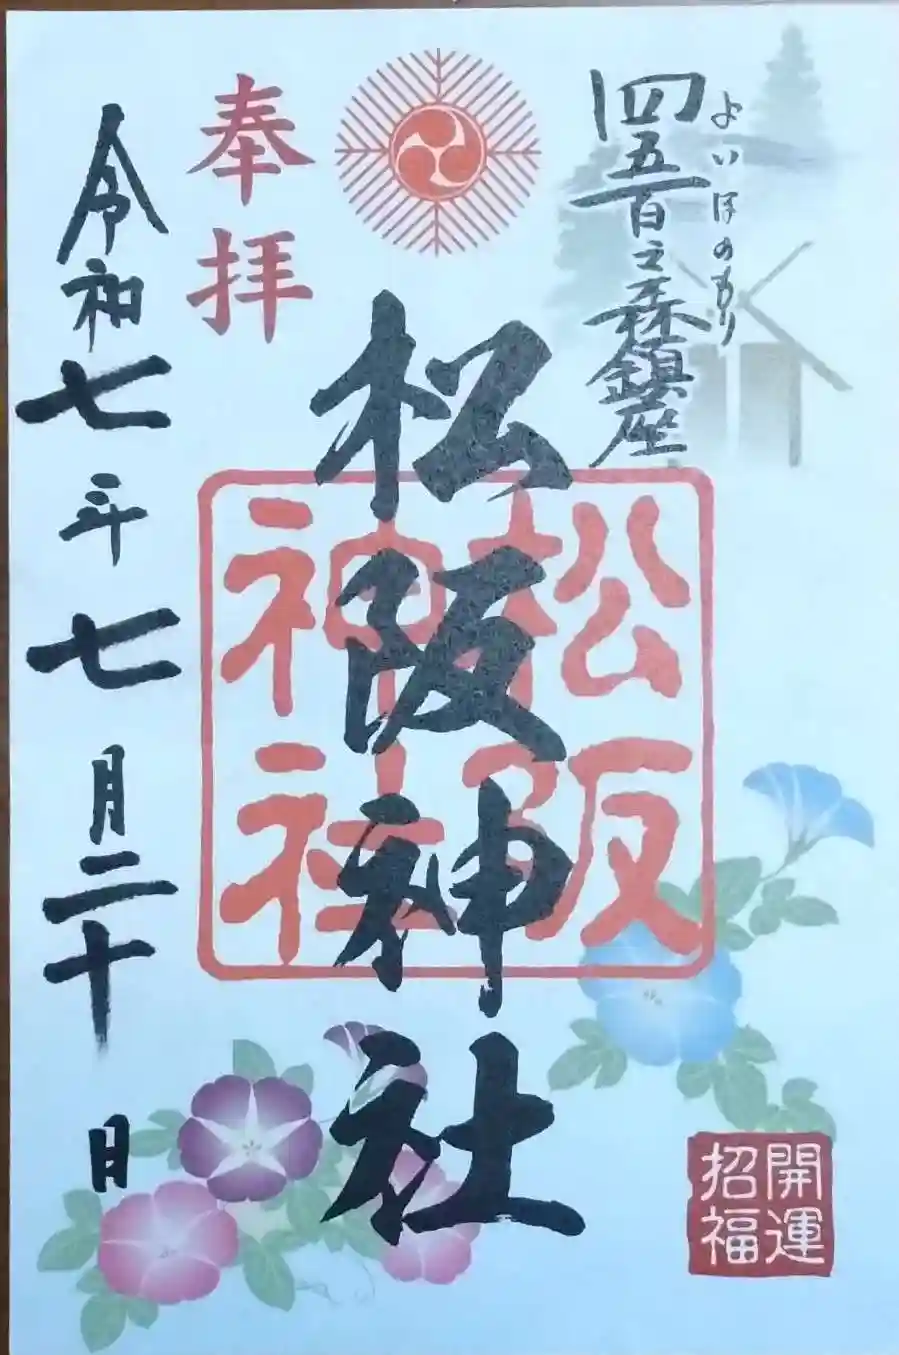 四五百之森鎮座
よいほのもり
松阪神社
松阪
神社
奉拝
令和七年七月二十日
開運
招福